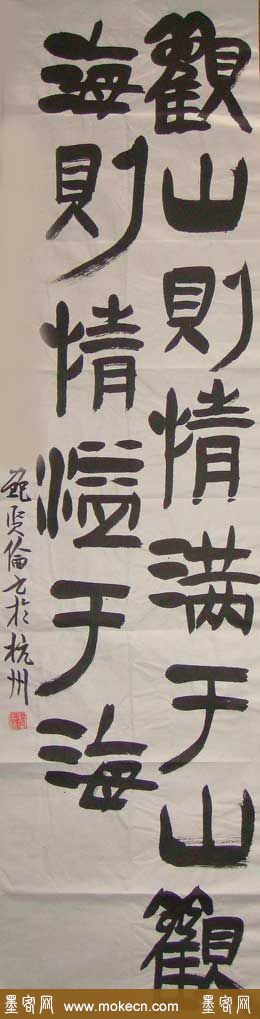 觀山則情满于山觀
海則情溢于海
鲍贤倫书於杭州
墨客网 www.mokecn.com 墨客网